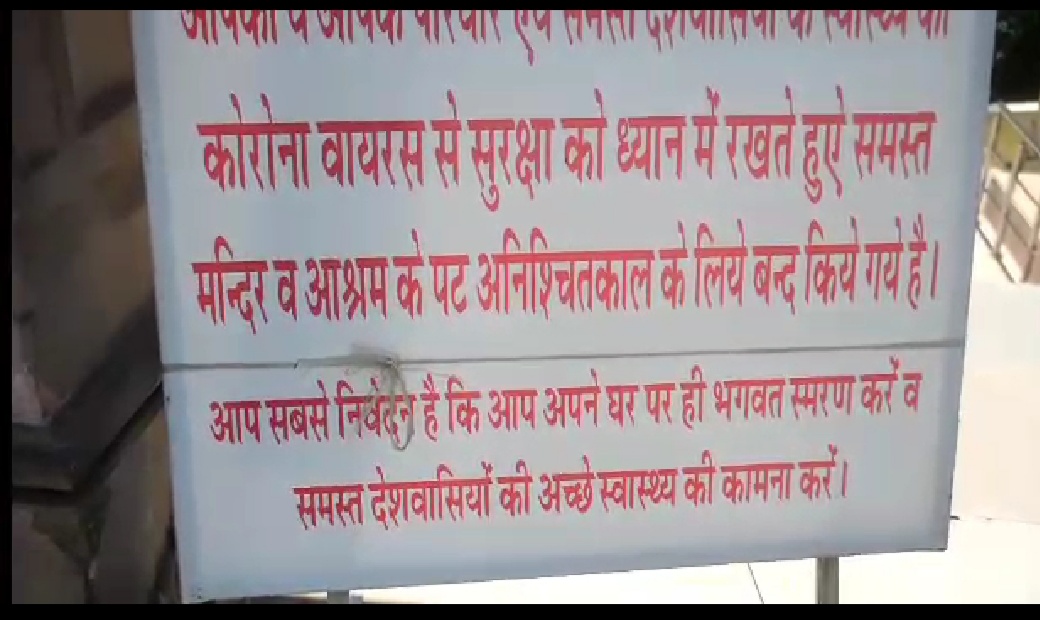 आपको व आपके परिवार एवं समस्त देशवासियों के स्वास्थ्य को
कोरोना वायरस से सुरक्षा को ध्यान में रखते हुऐ समस्त
मन्दिर व आश्रम के पट अनिश्चितकाल के लिये बन्द किये गये है।
आप सबसे निवेदन है कि आप अपने घर पर ही भगवत स्मरण करें व
समस्त देशवासियों की अच्छे स्वास्थ्य की कामना करें।